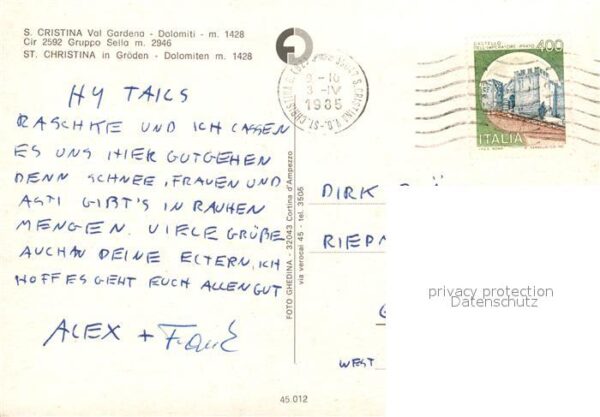 S. CRISTINA Val Gardena - Dolomiti - m. 1428
Cir 2592 Gruppo Sella m. 2946
ST. CHRISTINA in Gröden - Dolomiten m. 1428
HY TAILS
RASCHKE UND ICH LASSEN
ES UNS HIER GUTGEHEN
DENN SCHNEE, FRAUEN UND
ASTI GIBT'S IN RAUHEN
MENGEN. VIELE GRÜßE
AUCH AN DEINE ELTERN, ICH
HOFF ES GEHT EUCH ALLEN GUT
ALEX +
FOTO GHEDINA - 32043 Cortina d'Ampezzo
via verocai 45 - tel. 3506
45.012
3-IV
1985
CASTELLO
DELL'IMPERATORE-PRATO
400
ITALIA
DIRK
WEST
privacy protection
Datenschutz